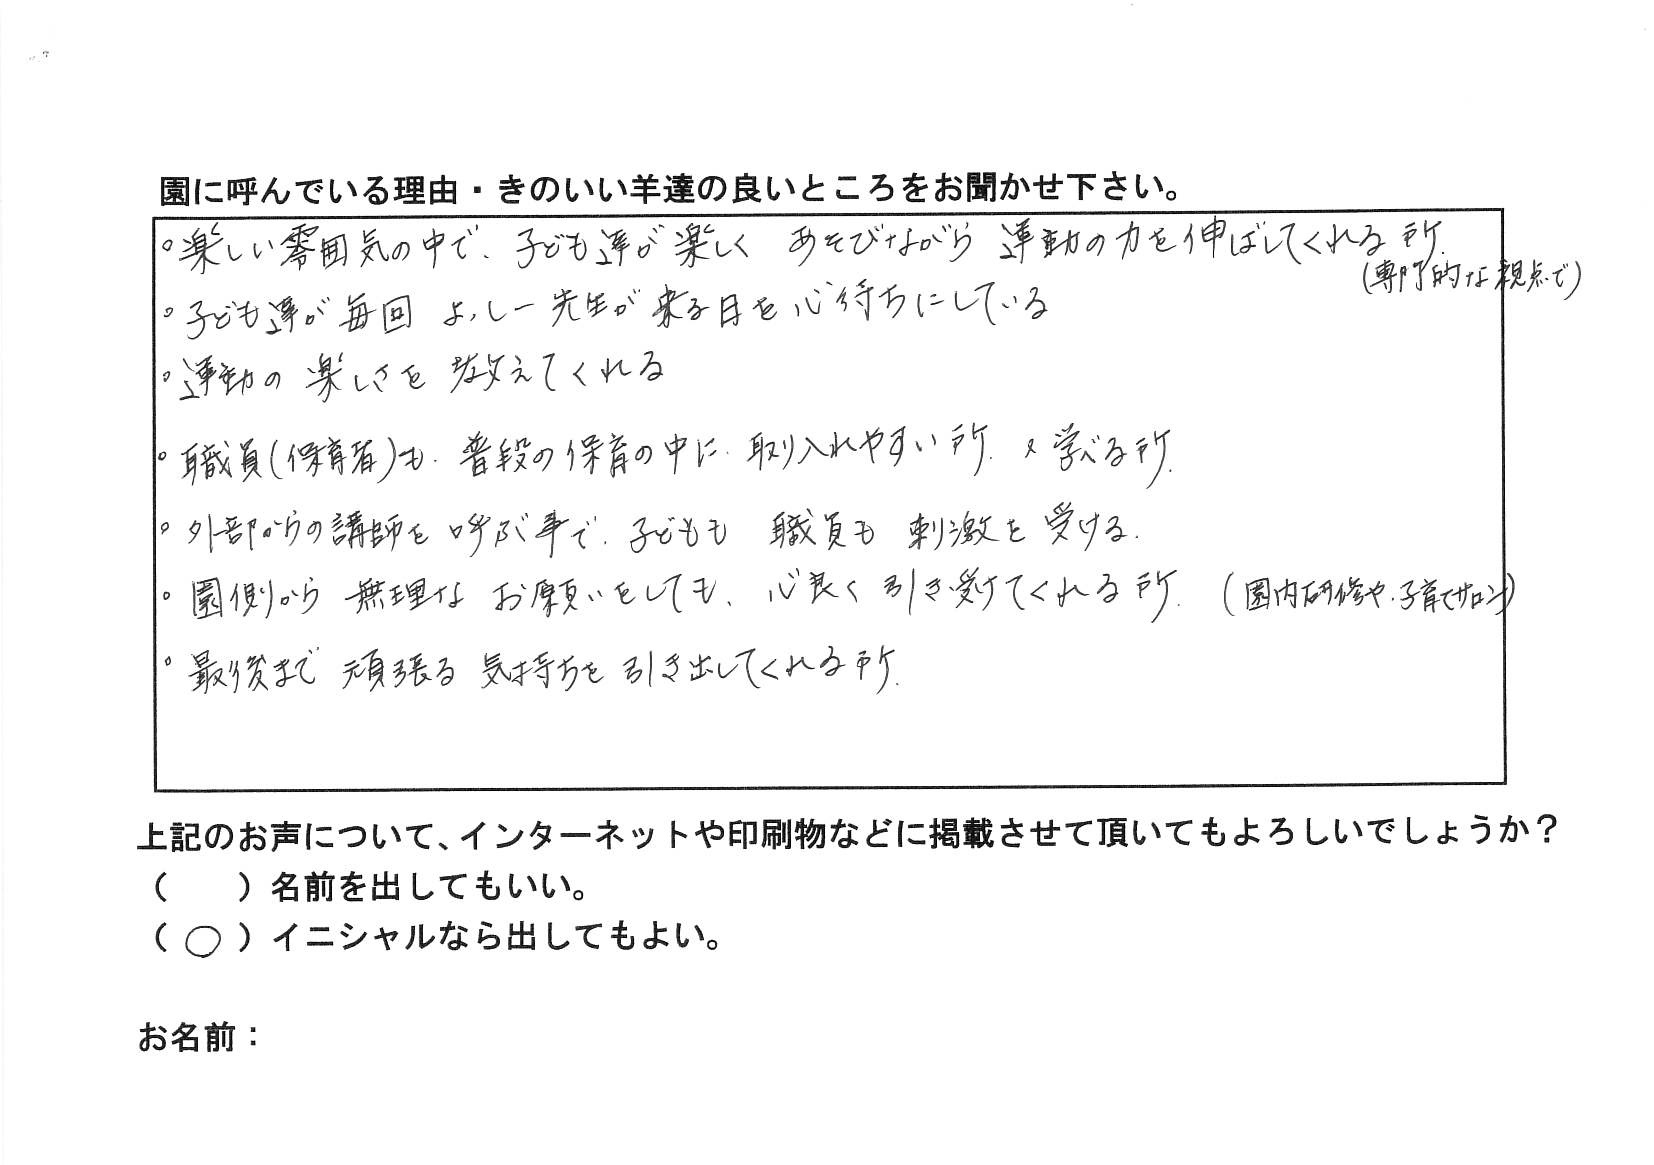 園に呼んでいる理由・きのいい羊達の良いところをお聞かせ下さい。
○楽しい雰囲気の中で、子ども達が楽しく あそびながら 運動の力を伸ばしてくれる所。
(専門的な視点で)
○子ども達が毎回 よっしー先生が来る日を心待ちにしている
○運動の楽しさを教えてくれる
○職員(保育者)も、普段の保育の中に、取り入れやすい所。 学べる所。
○外部からの講師を呼ぶ事で、子どもも 職員も 刺激を受ける。
○園側から 無理な お願いをしても、心良く引き受けてくれる所。(園内研修や、子育てサロン)
○最後まで 頑張る 気持ちを引き出してくれる所。
上記のお声について、インターネットや印刷物などに掲載させて頂いてもよろしいでしょうか？
(　　)名前を出してもいい。
(○)イニシャルなら出してもよい。
お名前：